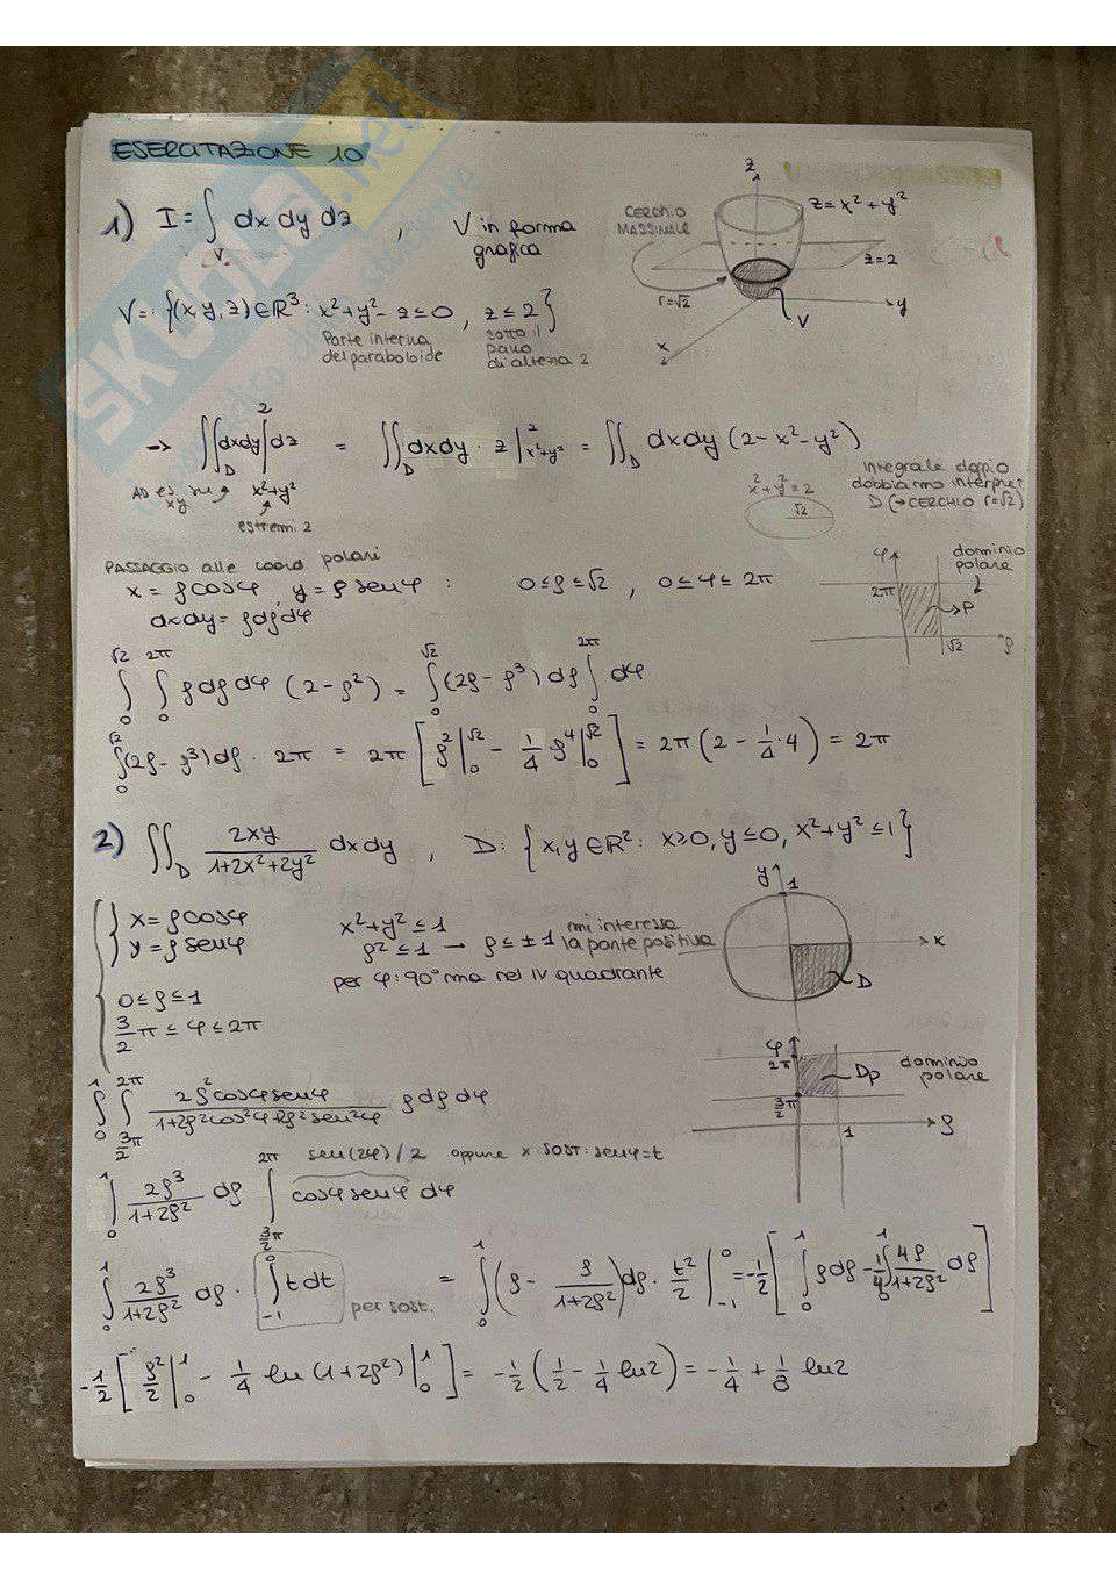 ESERCITAZIONE 10
1) I = ∫_V dx dy dz , V in forma grafica
CERCHIO MASSIMALE
r=√2
z
z=x²+y²
z=2
y
V
x
V= {(x,y,z)∈R³: x²+y²-z≤0 , z≤2}
Parte interna del paraboloide
sotto il piano di altezza 2
→ ∬_D dxdy ∫_{x²+y²}^2 dz = ∬_D dxdy · z|_{x²+y²}^2 = ∬_D dxdy (2-x²-y²)
xy
estremi z
x²+y²=2
√2
integrale doppio
dobbiamo interpret
D (→CERCHIO r=√2)
PASSAGGIO alle coord polari
x= ρcosφ , y= ρ senφ : 0≤ρ≤√2 , 0≤φ≤2π
dxdy= ρdρdφ
φ
2π
dominio polare
√2
ρ
∫_0^{√2} ∫_0^{2π} ρdρdφ (2-ρ²) = ∫_0^{√2} (2ρ-ρ³)dρ ∫_0^{2π} dφ
∫_0^{√2} (2ρ-ρ³)dρ · 2π = 2π [ρ²|_0^{√2} - 1/4 ρ⁴|_0^{√2}] = 2π(2 - 1/4·4) = 2π
2) ∬_D 2xy/(1+2x²+2y²) dxdy , D: {x,y∈R²: x≥0, y≤0, x²+y²≤1}
{ x= ρcosφ
y= ρsenφ
0≤ρ≤1
3/2 π ≤ φ ≤ 2π
x²+y²≤1
ρ²≤1 → ρ≤±1 mi interessa la parte positiva
per φ: 90° ma nel IV quadrante
y
1
x
D
φ
2π
3/2 π
Dρ
dominio polare
1
ρ
∫_0^1 ∫_{3/2 π}^{2π} 2ρ²cosφsenφ/(1+2ρ²cos²φ+2ρ²sen²φ) ρdρdφ
sen(2φ)/2 oppure x sost. senφ=t
∫_0^1 2ρ³/(1+2ρ²) dρ ∫_{3/2 π}^{2π} cosφsenφ dφ
∫_0^1 2ρ³/(1+2ρ²) dρ · ∫_{-1}^0 tdt per sost. = ∫_0^1 (ρ - ρ/(1+2ρ²))dρ · t²/2|_{-1}^0 = -1/2 [∫_0^1 ρdρ - 1/4 ∫_0^1 4ρ/(1+2ρ²) dρ]
-1/2 [ρ²/2|_0^1 - 1/4 ln(1+2ρ²)|_0^1] = -1/2 (1/2 - 1/4 ln2) = -1/4 + 1/8 ln2